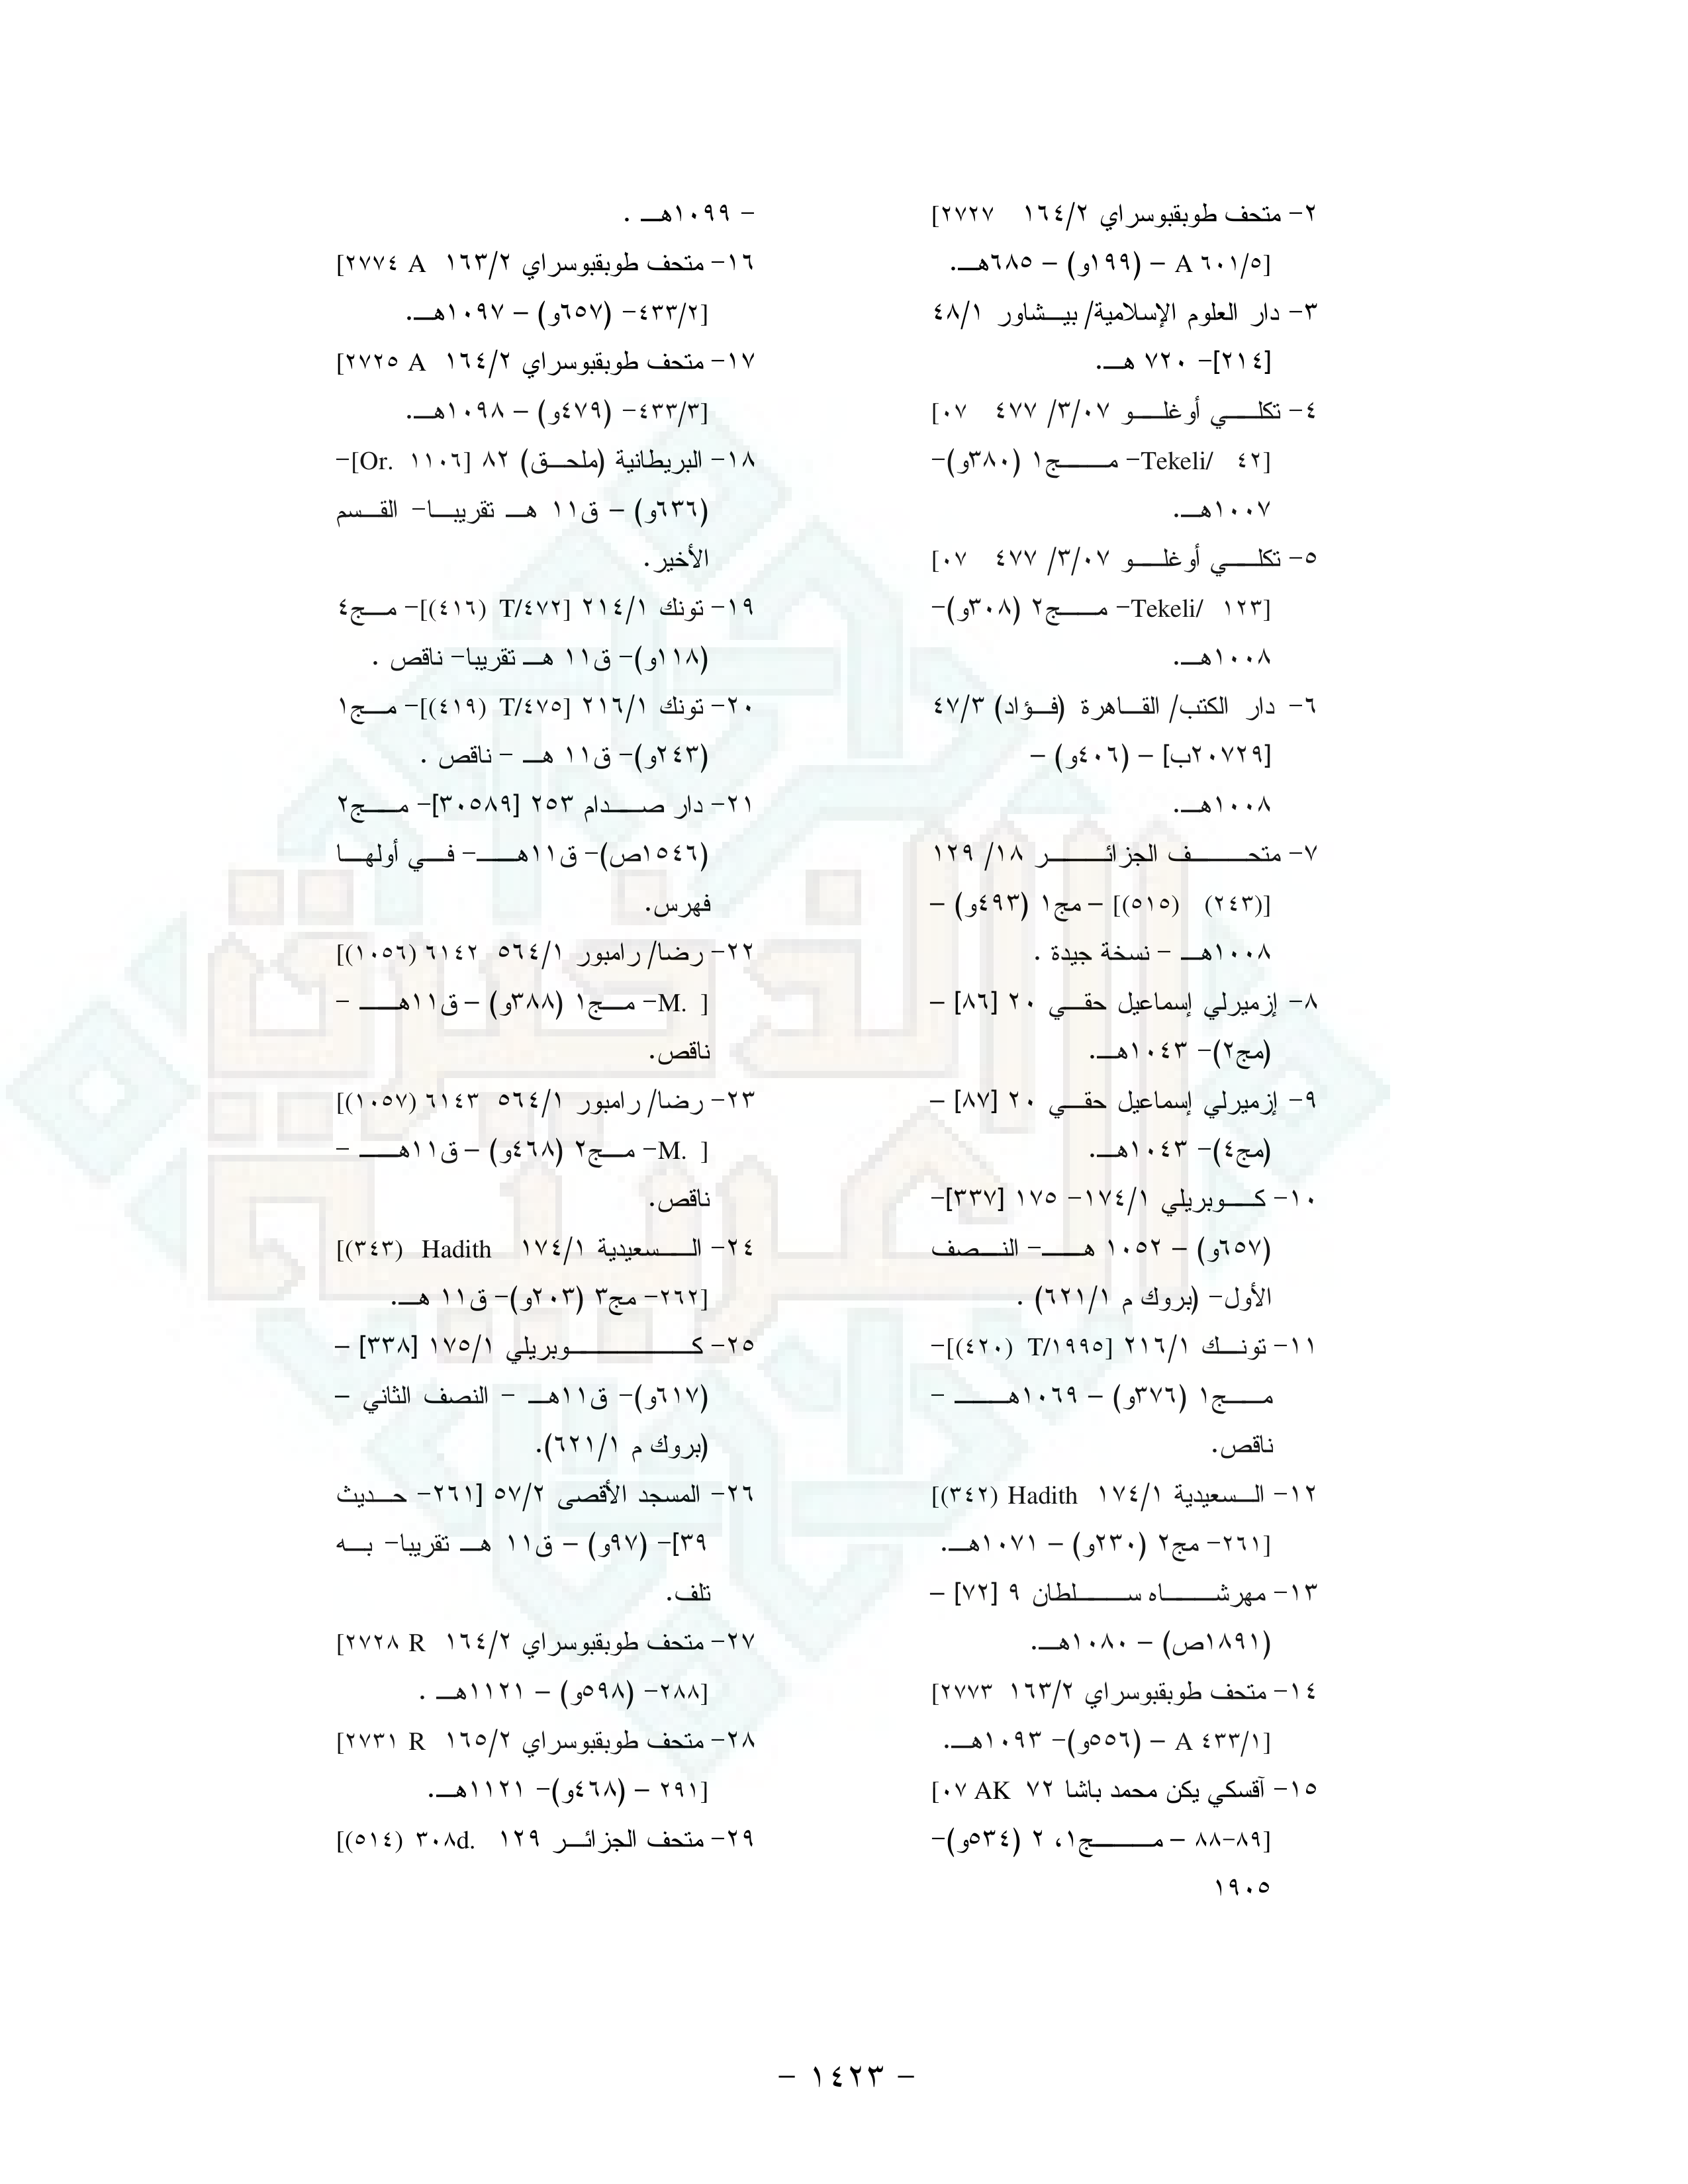 ٢- متحف طوبقبوسراي ١٦٤/٢ [٢٧٢٧
A ٦٠١/٥] – (١٩٩و) – ٦٨٥هـ.
٣- دار العلوم الإسلامية/ بيشاور ٤٨/١
[٢١٤]- ٧٢٠ هـ.
٤- تكلي أوغلو ٣/٠٧/ ٤٧٧ [٠٧
Tekeli/ ٤٢]- مج١ (٣٨٠و)-
١٠٠٧هـ.
٥- تكلي أوغلو ٣/٠٧/ ٤٧٧ [٠٧
Tekeli/ ١٢٣]- مج٢ (٣٠٨و)-
١٠٠٨هـ.
٦- دار الكتب/ القاهرة (فؤاد) ٤٧/٣
[٢٠٧٢٩ب] – (٤٠٦و) –
١٠٠٨هـ.
٧- متحف الجزائر ١٨/ ١٢٩
[(٢٤٣) (٥١٥)] – مج١ (٤٩٣و) –
١٠٠٨هـ – نسخة جيدة .
٨- إزميرلي إسماعيل حقي ٢٠ [٨٦] –
(مج٢)- ١٠٤٣هـ.
٩- إزميرلي إسماعيل حقي ٢٠ [٨٧] –
(مج٤)- ١٠٤٣هـ.
١٠- كوبريلي ١٧٤/١- ١٧٥ [٣٣٧]-
(٦٥٧و) – ١٠٥٢ هـ- النصف
الأول- (بروك م ٦٢١/١) .
١١- تونك ٢١٦/١ [T/١٩٩٥ (٤٢٠)]-
مج١ (٣٧٦و) – ١٠٦٩هـ –
ناقص.
١٢- السعيدية ١٧٤/١ Hadith (٣٤٢)]
٢٦١]- مج٢ (٢٣٠و) – ١٠٧١هـ.
١٣- مهرشاه سلطان ٩ [٧٢] –
(١٨٩١ص) – ١٠٨٠هـ.
١٤- متحف طوبقبوسراي ١٦٣/٢ [٢٧٧٣
A ٤٣٣/١] – (٥٥٦و)- ١٠٩٣هـ.
١٥- آقسكي يكن محمد باشا ٧٢ [٠٧ AK
٨٨-٨٩] – مج١، ٢ (٥٣٤و)-
١٩٠٥
– ١٠٩٩هـ .
١٦- متحف طوبقبوسراي ١٦٣/٢ [٢٧٧٤ A
٤٣٣/٢]- (٦٥٧و) – ١٠٩٧هـ.
١٧- متحف طوبقبوسراي ١٦٤/٢ [٢٧٢٥ A
٤٣٣/٣]- (٤٧٩و) – ١٠٩٨هـ.
١٨- البريطانية (ملحق) ٨٢ [Or. ١١٠٦]-
(٦٣٦و) – ق١١ هـ تقريبا- القسم
الأخير.
١٩- تونك ٢١٤/١ [T/٤٧٢ (٤١٦)]- مج٤
(١١٨و)- ق١١ هـ تقريبا- ناقص .
٢٠- تونك ٢١٦/١ [T/٤٧٥ (٤١٩)]- مج١
(٢٤٣و)- ق١١ هـ – ناقص .
٢١- دار صدام ٢٥٣ [٣٠٥٨٩]- مج٢
(١٥٤٦ص)- ق١١هـ- في أولها
فهرس.
٢٢- رضا/ رامبور ٥٦٤/١ ٦١٤٢ (١٠٥٦)]
M. ]- مج١ (٣٨٨و) – ق١١هـ –
ناقص.
٢٣- رضا/ رامبور ٥٦٤/١ ٦١٤٣ (١٠٥٧)]
M. ]- مج٢ (٤٦٨و) – ق١١هـ –
ناقص.
٢٤- السعيدية ١٧٤/١ Hadith (٣٤٣)]
٢٦٢]- مج٣ (٢٠٣و)- ق١١ هـ.
٢٥- كوبريلي ١٧٥/١ [٣٣٨] –
(٦١٧و)- ق١١هـ – النصف الثاني –
(بروك م ٦٢١/١).
٢٦- المسجد الأقصى ٥٧/٢ [٢٦١- حديث
٣٩]- (٩٧و) – ق١١ هـ تقريبا- به
تلف.
٢٧- متحف طوبقبوسراي ١٦٤/٢ [٢٧٢٨ R
٢٨٨]- (٥٩٨و) – ١١٢١هـ .
٢٨- متحف طوبقبوسراي ١٦٥/٢ [٢٧٣١ R
٢٩١] – (٤٦٨و)- ١١٢١هـ.
٢٩- متحف الجزائر ١٢٩ .٣٠٨d (٥١٤)]
– ١٤٢٣ –